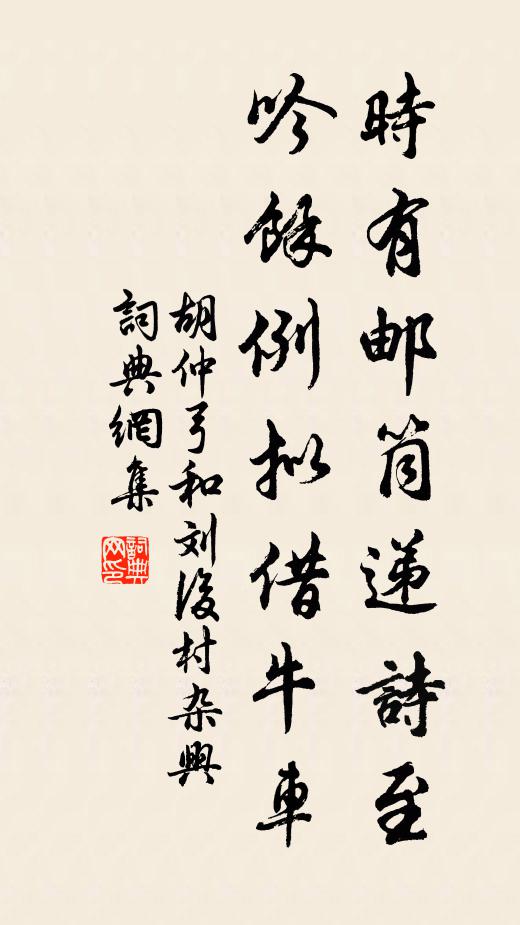 時有邮筒递詩至
吟餘例拟借牛車
胡仲弓和刘後村杂興
詞典網集
詞典网印